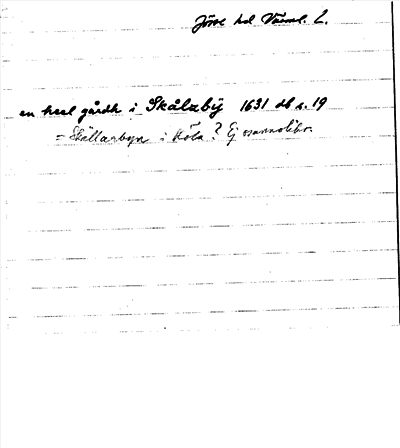 Jösse hd Värml. L.
en heel gårdh i Skålaby 1631 db s. 19
= Skällarbyn i Köla? Ej osannolikt.